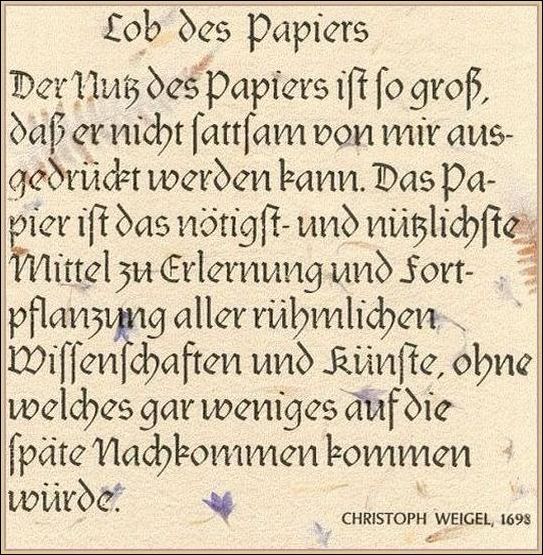 Lob des Papiers
Der Nutz des Papiers ist so groß,
daß er nicht sattsam von mir aus-
gedrückt werden kann. Das Pa-
pier ist das nötigst- und nützlichste
Mittel zu Erlernung und Fort-
pflanzung aller rühmlichen
Wissenschaften und Künste, ohne
welches gar weniges auf die
späte Nachkommen kommen
würde.
CHRISTOPH WEIGEL, 1698